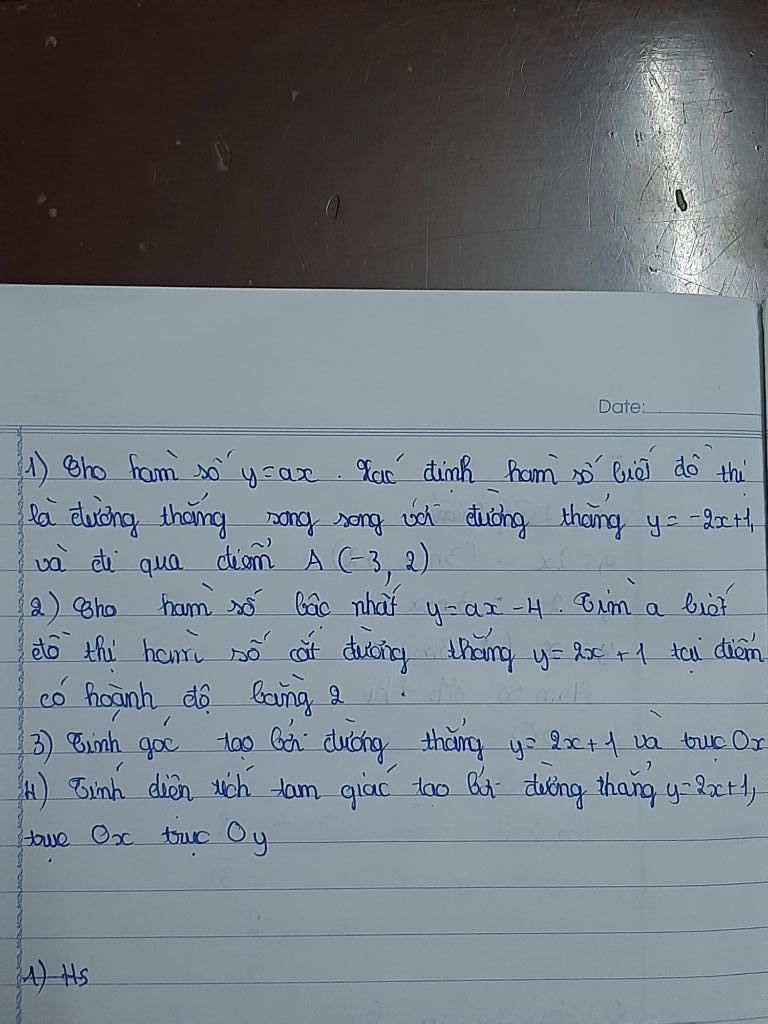 Date:
1) Cho hàm số y=ax. Xác định hàm số biết đồ thị
là đường thẳng song song với đường thẳng y = -2x+1,
và đi qua điểm A (-3, 2)
2) Cho hàm số bậc nhất y=ax -4. Tìm a biết
đồ thị hàm số cắt đường thẳng y=2x+1 tại điểm
có hoành độ bằng 2
3) Tính góc tạo bởi đường thẳng y=2x+1 và trục Ox
4) Tính diện tích tam giác tạo bởi đường thẳng y=2x+1,
trục Ox trục Oy
1) Hs